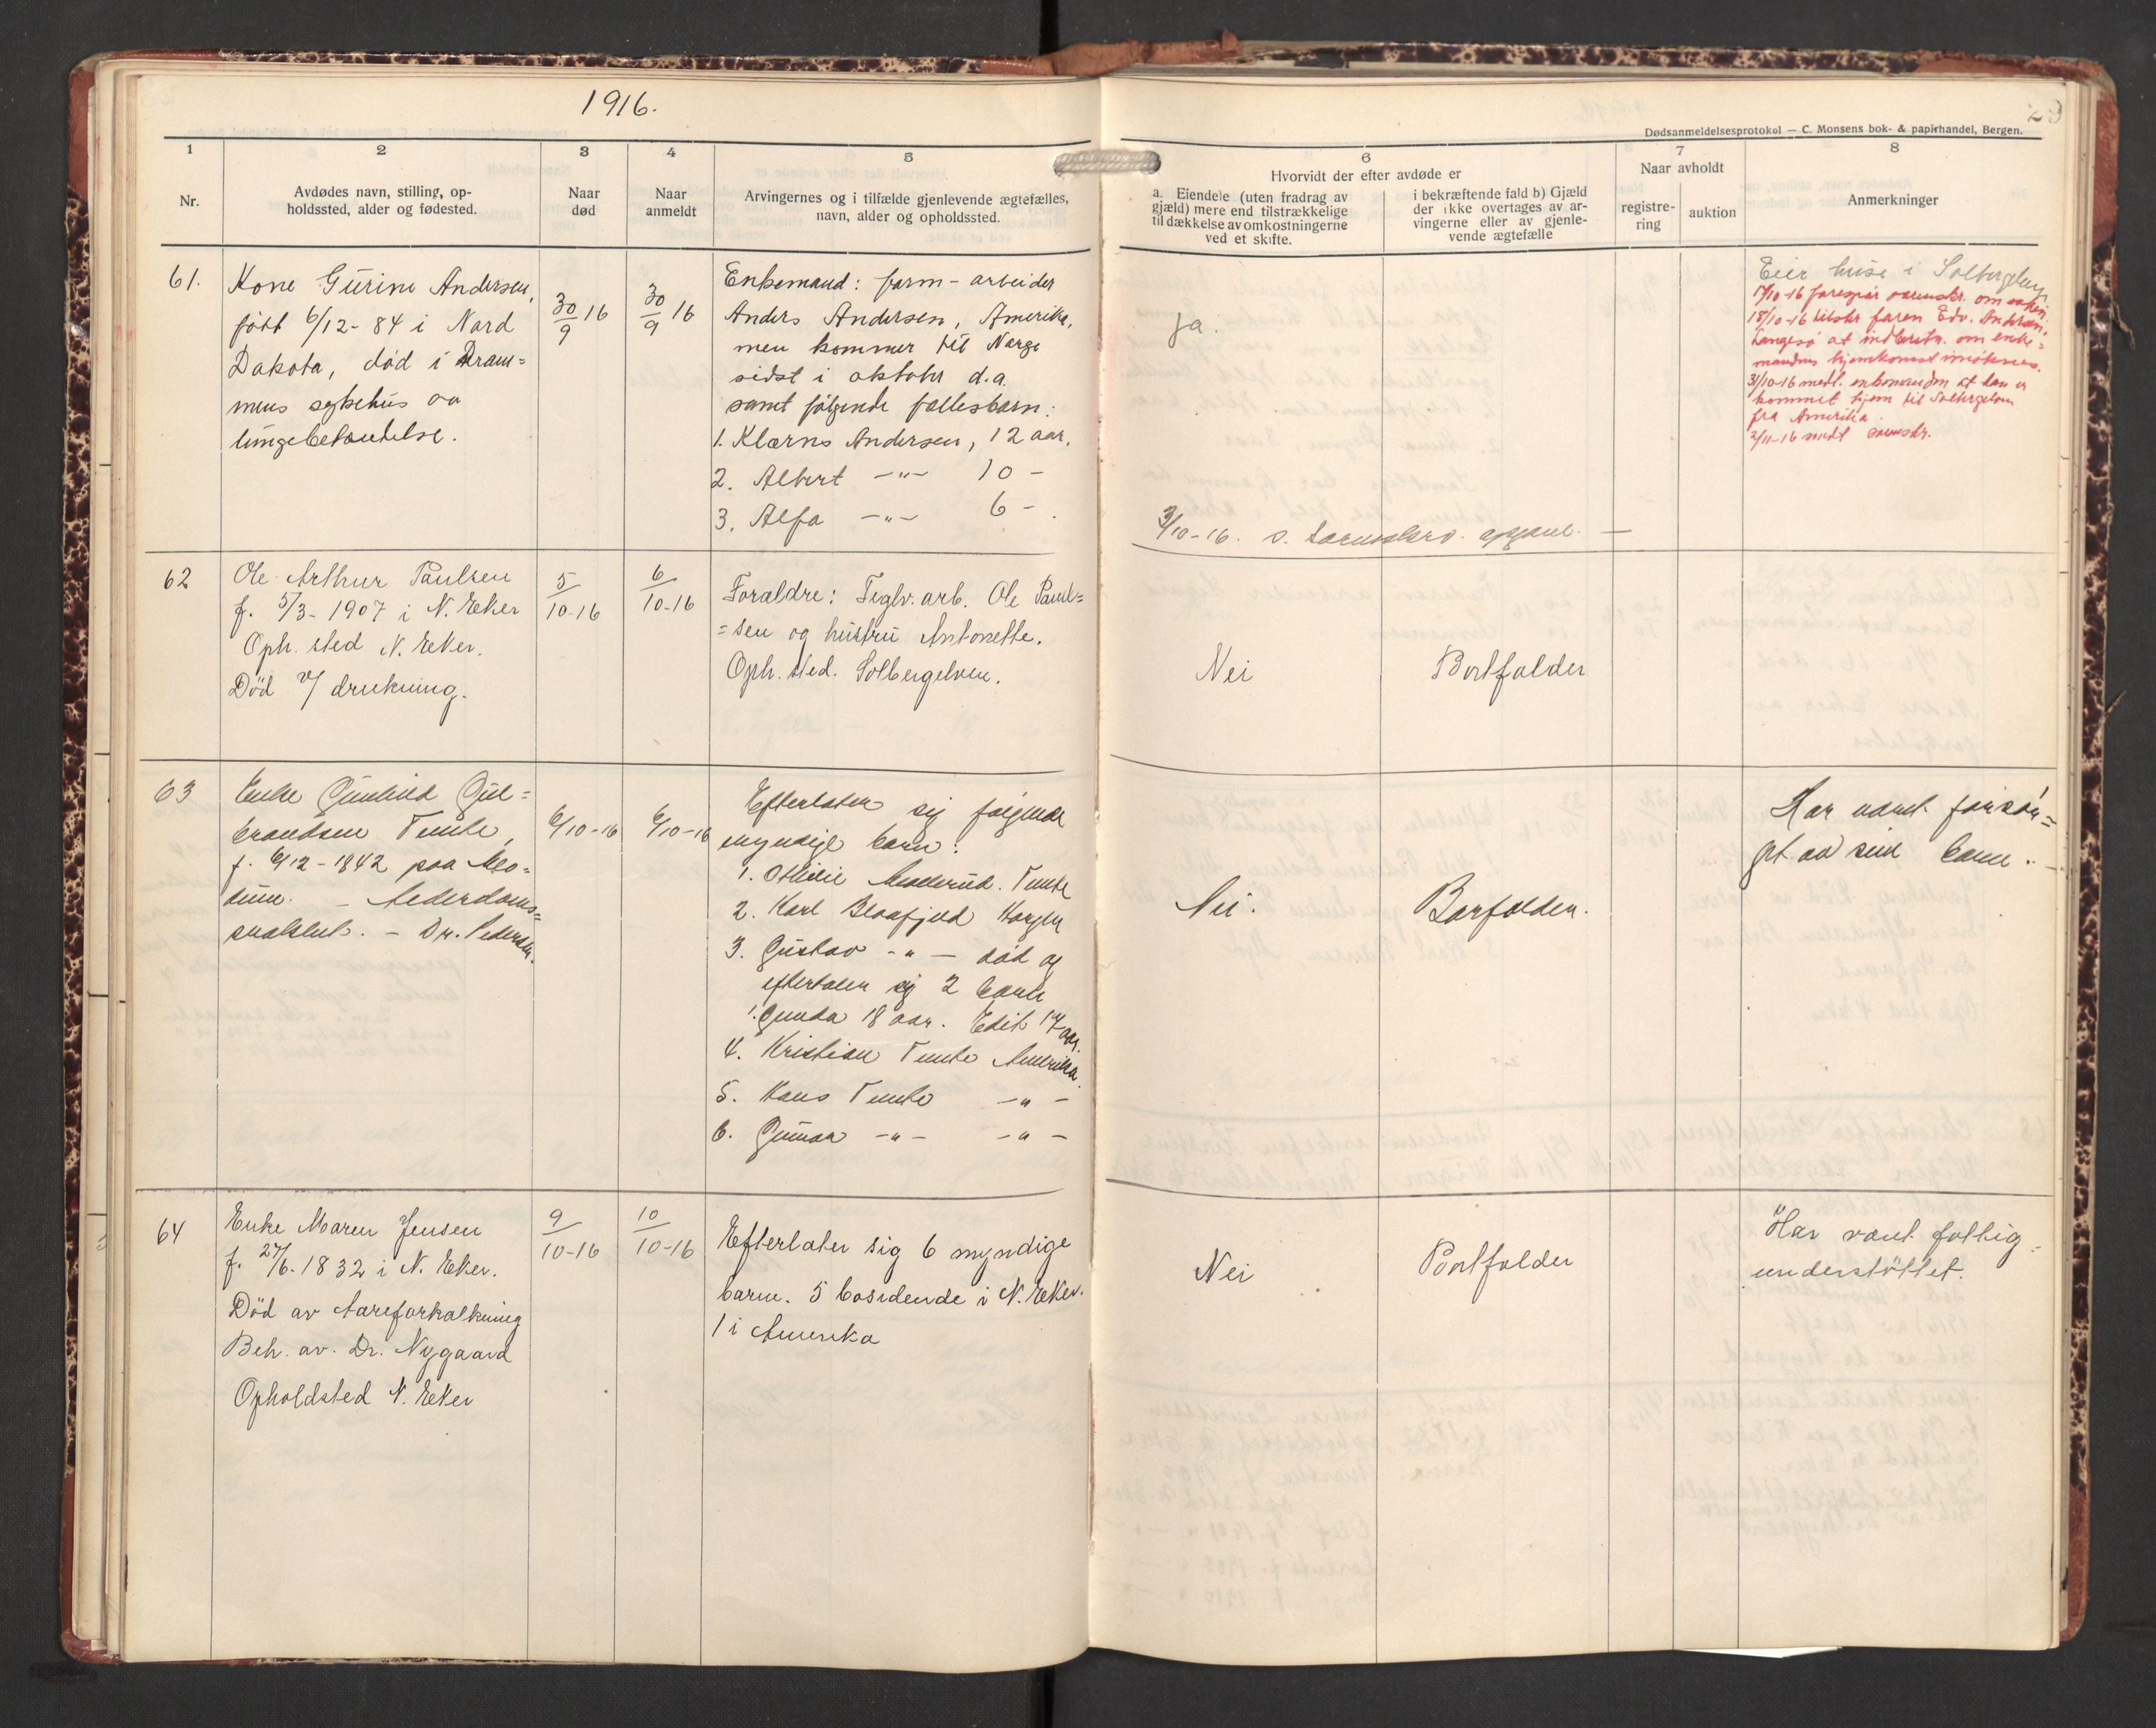 1916.
29
Dødsanmeldelsesprotokol — C. Monsens bok- & papirhandel, Bergen.
1
Nr.
2
Avdødes navn, stilling, op-
holdssted, alder og fødested.
3
Naar
død
4
Naar
anmeldt
5
Arvingernes og i tilfælde gjenlevende ægtefælles,
navn, alder og opholdssted.
6
Hvorvidt der efter avdøde er
a. Eiendele (uten fradrag av
gjæld) mere end tilstrækkelige
til dækkelse av omkostningerne
ved et skifte.
i bekræftende fald b) Gjæld
der ikke overtages av ar-
vingerne eller av gjenle-
vende ægtefælle
7
Naar avholdt
registre-
ring
auktion
8
Anmerkninger
61.
Kone Gurine Andersen,
født 6/12-84 i Nord
Dakota, død i Dram=
mens sykehus av
lungebetændelse.
30/9 16
30/9 16
Enkemand: farm-arbeider
Anders Andersen, Amerika,
men kommer til Norge
sidst i oktobr d.a.
samt følgende fællesbarn:
1. Klarns Andersen, 12 aar,
2. Albert -"- 10 -
3. Alfa -"- 6 - .
ja.
3/10-16. s.
Eier huse i Solbergelven
17/10-16 om
18/10-16 faren Edv. Andersen
at om enke=
mandens hjemkomst
31/10-16 medd. enkemanden at han er
kommet hjem til Solbergelven
fra Amerika.
2/11-16 medd
62
Ole Arthur Paulsen
f. 5/3-1907 i N. Eker
Oph. sted N. Eker.
Død v/ drukning.
5/10-16
6/10-16
Forældre: Teglv. arb. Ole Paul=
=sen og hustru Antonette.
Oph. sted. Solbergelven.
Nei
Bortfalder
63
Enke Gunhild Gul=
brandsen Temte,
f. 6/12-1842 paa Mo=
dum. - Alderdoms=
svakhet. - Dr. Pedersen.
6/10-16
6/10-16
Efterlater sig følgende
myndige barn:
1. Othilie Temte
2. Karl Blaafjeld Horgen
3. Gustav -"- død og
efterlater sig 2 barn
1. Gunda 18 aar. Edit 14 aar.
4. Kristian Temte Amerika.
5. Hans Temte -"-
6. Gunar -"- -"-
Nei.
Borfalder.
Har været forsør=
get av sine barn.
64
Enke Maren Jensen
f. 27/6-1832 i N. Eker.
Død av Aareforkalkning
Beh. av. Dr. Nygaard
Opholdsted N. Eker
9/10-16
10/10-16
Efterlater sig 6 myndige
barn. 5 bosidende i N. Eker.
1 i Amerika
Nei
Bortfalder
Har vært fattig=
understøttet.